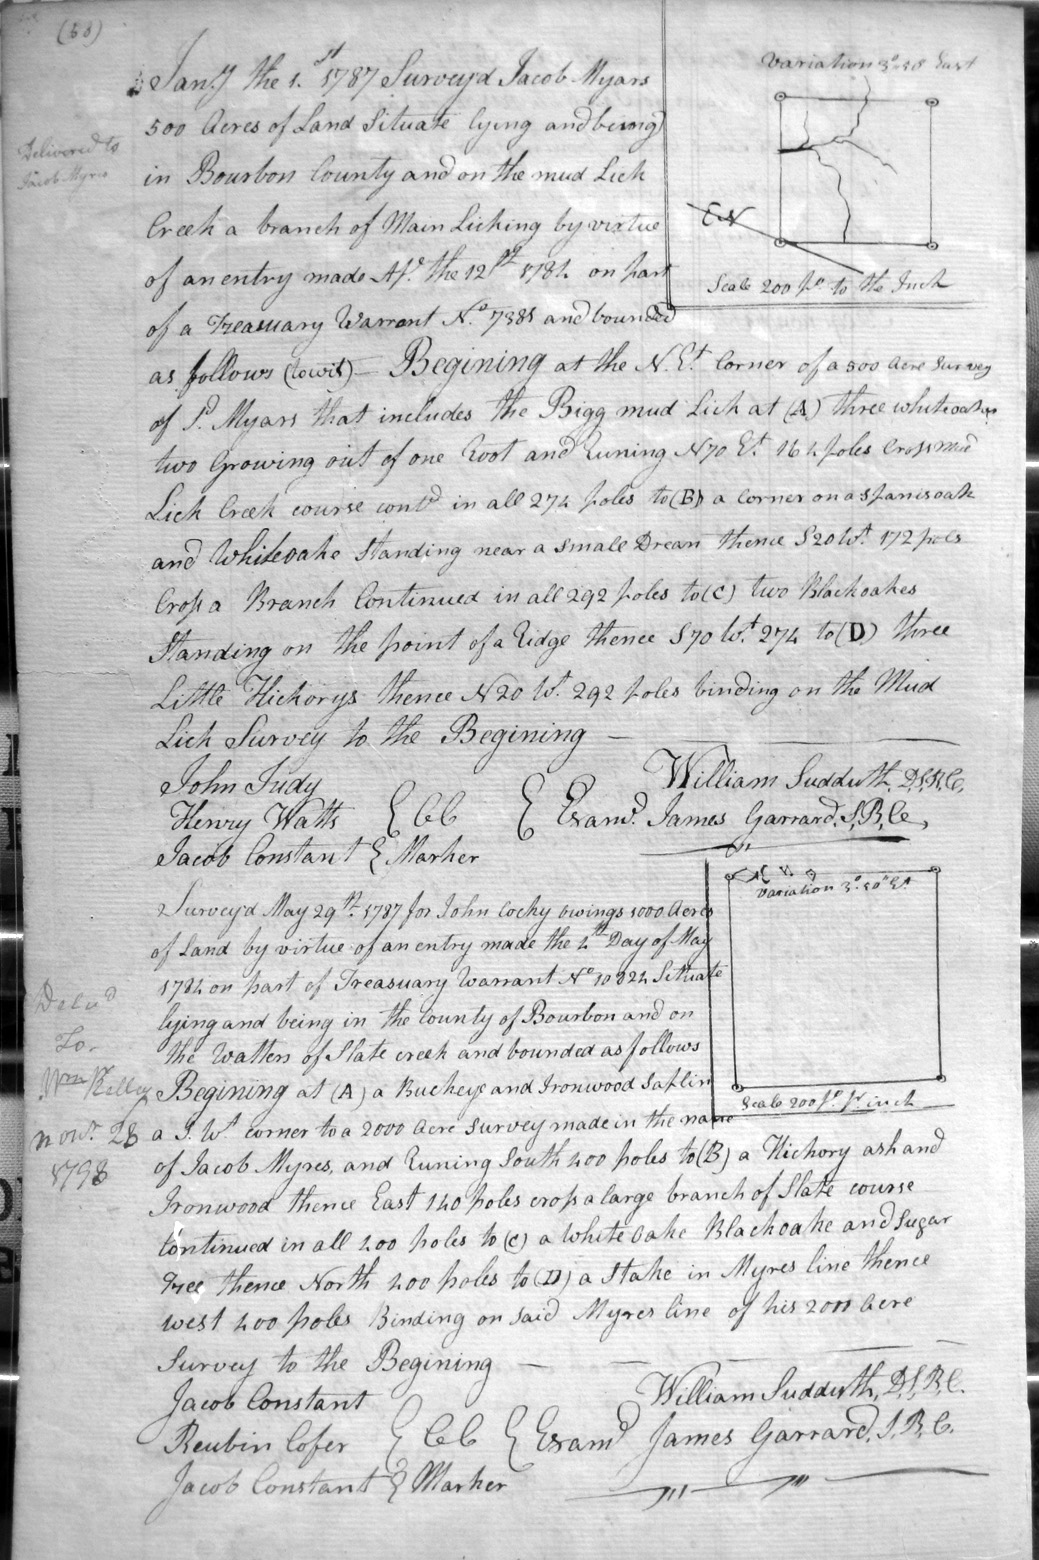 (53)
Variation 3°-50' East
Jan.y the 1.st 1787 Survey'd Jacob Myars
500 Acres of Land Situate lying and being
in Bourbon County and on the mud Lick
Creek a branch of Main Licking by virtue
of an entry made Ap.l the 12th 1784 on part
of a Treasuary Warrent N.o 7385 and bounded
Delivered to
Jacob Myres
Scale 200 po to the Inch
as follows (towit) — Begining at the N. Et. Corner of a 500 Acre Survey
of Sd. Myars that includes the Bigg mud Lick at (A) three whiteoakes
two Growing out of one Root and Runing N70 Et. 164 poles Cross Mud
Lick Creek course contd in all 274 poles to (B) a corner on a Spanisoak
and Whiteoake Standing near a Small Drean thence S20 Wt. 172 poles
Cross a Branch Continued in all 292 poles to (C) two Blackoakes
Standing on the point of a Ridge thence S70 Wt. 274 to (D) three
Little Hickorys thence N20 Wt. 292 poles binding on the Mud
Lick Survey to the Begining —
John Judy
William Sudduth, D.S.B.C.
Henry Watts } CC } Examd. James Garrard. S.B.C.
Jacob Constant } Marker
Variation 3°.50' Et.
Survey'd May 29th 1787 for John Cocky Owings 1000 Acres
of Land by virtue of an entry made the 4th Day of May
1784 on part of Treasuary Warrant No 10824 Situate
lying and being in the County of Bourbon and on
the Watters of Slate creek and bounded as follows
Begining at (A) a Buckeye and Ironwood Saplin
Scale 200 po. pr. inch
Delivd
To
Wm Kelley
Novr. 28
1798
a S. Wt. corner to a 2000 Acre Survey made in the name
of Jacob Myres, and Runing South 400 poles to (B) a Hickory ash and
Ironwood thence East 140 poles cross a large branch of Slate course
Continued in all 400 poles to (C) a White Oake Blackoake and Sugar
tree thence North 400 poles to (D) a Stake in Myres line thence
west 400 poles Binding on said Myres line of his 2000 Acre
Survey to the Begining —
Jacob Constant
William Sudduth, D.S.B.C.
Reubin Cofer } CC } Examd James Garrard. S.B.C.
Jacob Constant } Marker